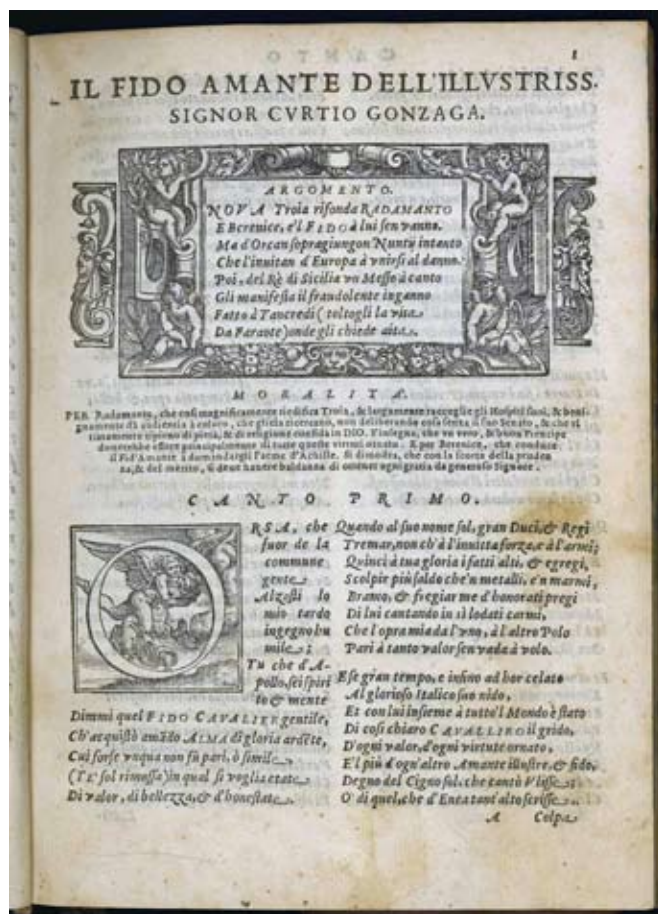 1
IL FIDO AMANTE DELL'ILLVSTRISS.
SIGNOR CVRTIO GONZAGA.
ARGOMENTO.
NOVA Troia rifonda RADAMANTO
E Berenice, e'l FIDO à lui sen vanno.
Ma d'Orcan sopragiungon Nuntij intanto
Che l'inuitan d'Europa à vnirsi al danno.
Poi, del Rè di Sicilia vn Messo à canto
Gli manifesta il fraudolente inganno
Fatto à Tancredi (toltogli la vita
Da Farante) onde gli chiede aita.
MORALITA'.
PER Radamanto, che così magnificamente riedifica Troia, & largamente raccoglie gli Hospiti suoi, & beni-
gnamente dà audienza à coloro, che gliela ricercano, non deliberando cosa senza il suo Senato, & che si
mostra ripieno di pietà, & di religione confida in DIO. S'insegna, che vn vero, & buon Prencipe
dourebbe essere principalmente di tutte queste virtù ornato. E per Berenice, che conduce
il Fid'Amante à domandargli l'arme d'Achille, si dimostra, che con la scorta della pruden
za, & del merito, si deue hauere baldanza di ottener ogni gratia da generoso Signore.
CANTO PRIMO.
ORSA, che
fuor de la
commune
gente
Alzasti lo
mio tardo
ingegno hu
mile;
Tu che d'A-
pollo, sei spiri
to & mente
Dimmi quel FIDO CAVALIER gentile,
Ch'acquistò amãdo ALMA di gloria ardẽte,
Cui forse vnqua non fù pari, ò simile
(Te sol rimossa) in qual si voglia etate
Di valor, di bellezza, & d'honestate.
Quando al suo nome sol, gran Duci, & Regi
Tremar, non ch'à l'inuitta forza, e à l'armi;
Quinci à tua gloria i fatti alti, & egregi,
Scolpir più saldo che'n metalli, e'n marmi,
Bramo, & fregiarme d'honorati pregi
Di lui cantando in sì lodati carmi,
Che l'opra mia da l'vno, à l'altro Polo
Pari à tanto valor sen vada à volo.
E se gran tempo, e infino ad hor celato
Al glorioso Italico suo nido,
Et con lui insieme à tutto'l Mondo è stato
Di così chiaro CAVALLIERO il grido,
D'ogni valor, d'ogni virtute ornato,
E'l più d'ogn'altro Amante illustre, & fido,
Degno del Cigno sol, che cantò Vlisse;
O' di quel, che d'Enea tant'alto scrisse.
A Colpa